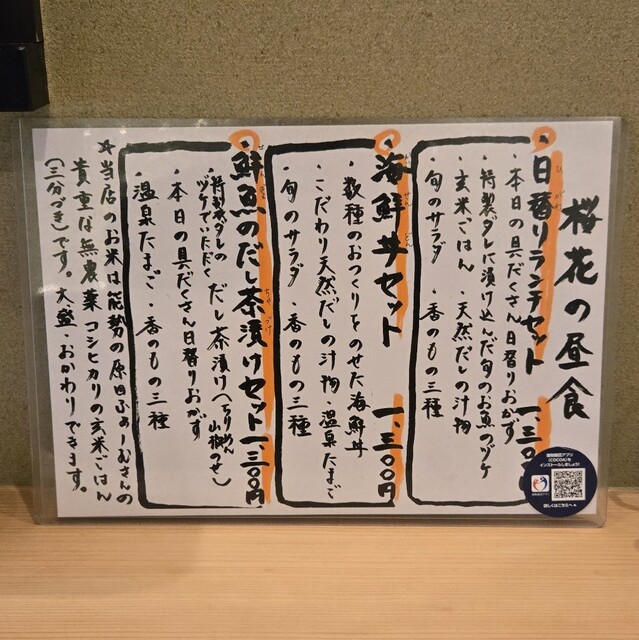 桜花の昼食
日替りランチセット 一、三〇〇円
・本日の具だくさん日替りおかず
・特製ダレに漬け込んだ旬のお魚のヅケ
・玄米ごはん ・天然だしの汁物
・旬のサラダ 香のもの三種
海鮮丼セット 一、三〇〇円
・数種のおつくりをのせた海鮮丼
・こだわり天然だしの汁物・温泉たまご
・旬のサラダ ・香のもの三種
鮮魚のだし茶漬けセット 一、三〇〇円
・特製ダレのヅケでいただく だし茶漬け(ちりめん山椒のせ)
・本日の具だくさん日替りおかず
・温泉たまご ・香のもの三種
☆当店のお米は能勢の原田ふぁーむさんの
貴重な無農薬コシヒカリの玄米ごはん
(三分づき)です。大盛・おかわりできます。
接触確認アプリ
(COCOA)を
インストールしましょう!
詳しくはこちらへ▲